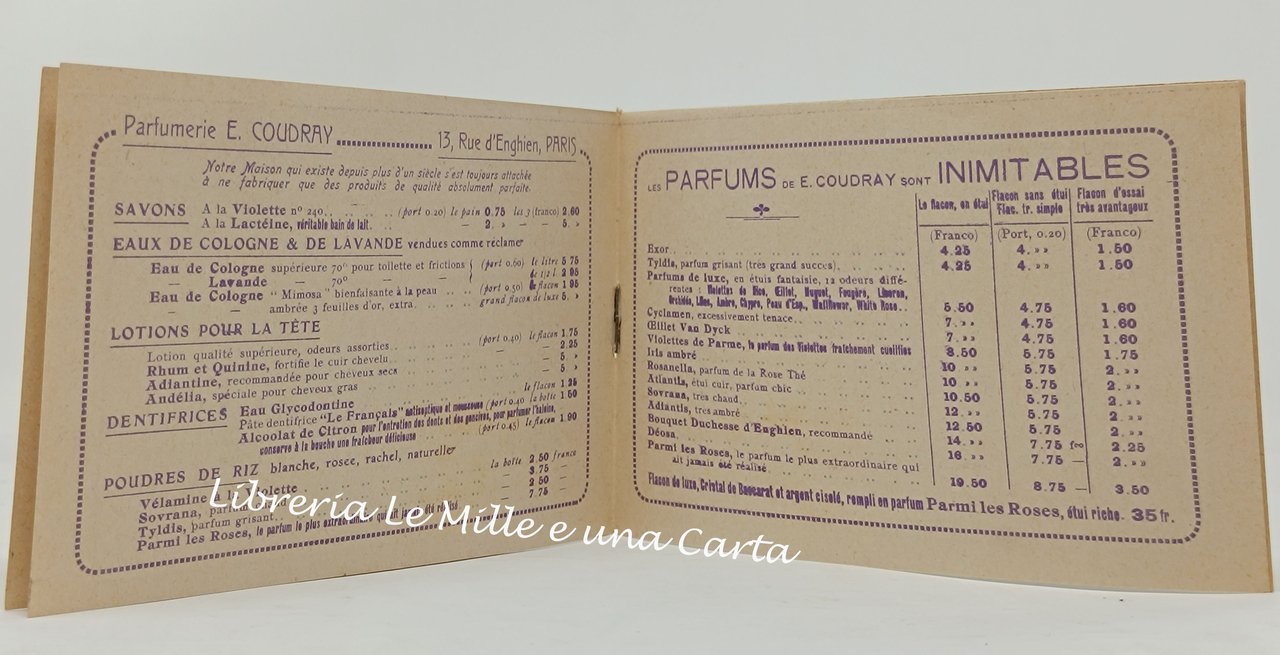 Parfumerie E. COUDRAY ........ 13, Rue d'Enghien, PARIS
Notre Maison qui existe depuis plus d'un siècle s'est toujours attachée
à ne fabriquer que des produits de qualité absolument parfaite.
SAVONS A la Violette nº 240 (port 0.20) le pain 0.75 les 3 (franco) 2.60
A la Lactéine, véritable bain de lait. — 2. » — 5. »
EAUX DE COLOGNE & DE LAVANDE vendues comme réclame
Eau de Cologne supérieure 70º pour toilette et frictions (port 0.60) le litre 5 75
— Lavande — 70º — le 1/2 l. 2 95
Eau de Cologne "Mimosa" bienfaisante à la peau (port 0.50) flacon 1 95
— — ambrée 3 feuilles d'or, extra. grand flacon de luxe 5. »
LOTIONS POUR LA TÊTE
Lotion qualité supérieure, odeurs assorties (port 0.40) le flacon 1.75
Rhum et Quinine, fortifie le cuir chevelu — 2.25
Adiantine, recommandée pour cheveux secs — 5 »
Andélia, spéciale pour cheveux gras — 5 »
DENTIFRICES Eau Glycodontine le flacon 1.25
Pâte dentifrice "Le Français" antiseptique et mousseuse (port 0.40 la boîte 1 50
Alcoolat de Citron pour l'entretien des dents et des gencives, pour parfumer l'haleine,
conserve à la bouche une fraîcheur délicieuse (port 0.45) le flacon 1.90
POUDRES DE RIZ blanche, rosée, rachel, naturelle
Vélamine à la Violette la boîte 2.50 franco
Sovrana, 3.75 —
Tyldis, parfum grisant 2 50 —
Parmi les Roses, le parfum le plus extraordinaire qui ait jamais été réalisé 7.75 —
LES PARFUMS DE E. COUDRAY SONT INIMITABLES
Le flacon, en étui Flacon sans étui Flac. tr. simple Flacon d'essai très avantageux
(Franco) (Port, 0.20) (Franco)
Exor 4.25 4. » » 1.50
Tyldis, parfum grisant (très grand succès) 4.25 4. » » 1.50
Parfums de luxe, en étuis fantaisie, 12 odeurs diffé-
rentes : Violettes de Nice, Œillet, Muguet, Fougère, Liseron,
Orchidée, Lilas, Ambre, Chypre, Peau d'Esp., Wallflower, White Rose 5.50 4.75 1.60
Cyclamen, excessivement tenace 7. » » 4.75 1.60
Œillet Van Dyck 7. » » 4.75 1.60
Violettes de Parme, le parfum des Violettes fraîchement cueillies 8.50 5.75 1.75
Iris ambré 10 » » 5.75 2. » »
Rosanella, parfum de la Rose Thé 10 » » 5.75 2. » »
Atlantis, étui cuir, parfum chic 10.50 5.75 2. » »
Sovrana, très chaud 12. » » 5.75 2. » »
Adiantis, très ambré 12.50 5.75 2. » »
Bouquet Duchesse d'Enghien, recommandée 14. » » 7.75 fco 2.25
Déosa 16. » » 7.75 — 2. » »
Parmi les Roses, le parfum le plus extraordinaire qui
ait jamais été réalisé 19.50 8.75 — 3.50
Flacon de luxe, Cristal de Baccarat et argent ciselé, rempli en parfum Parmi les Roses, étui riche. 35 fr.
Libreria Le Mille e una Carta